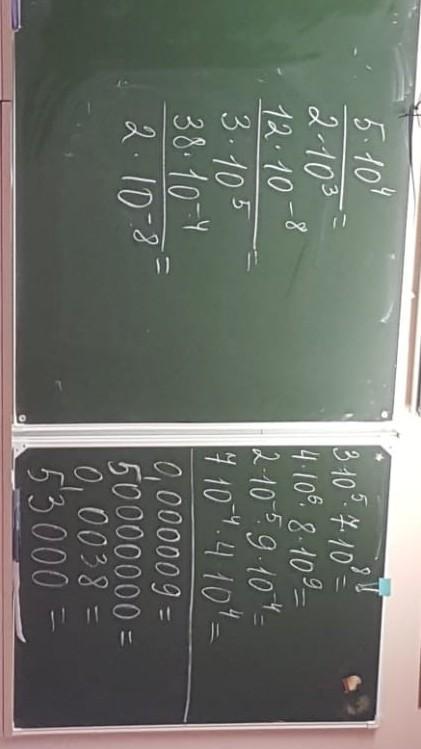 5·10⁴
2·10³ =
12·10⁻⁸
3·10⁵ =
38·10⁻⁴
2·10⁻⁸ =
3·10⁵·7·10⁸=
4·10⁶·8·10⁹=
2·10⁻⁵·9·10⁻⁴=
7·10⁻⁴·4·10⁴=
0,000009 =
50000000 =
0,0038 =
53000 =